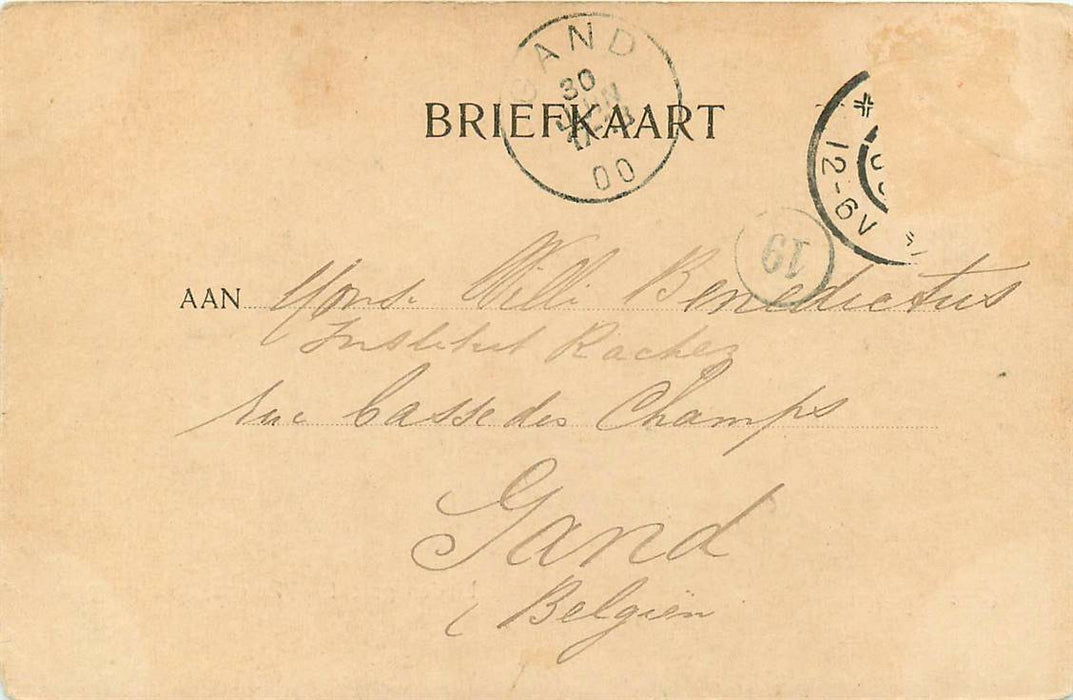 GAND
30
JAN
00
BRIEFKAART
12-6V
19
AAN Monsr Willi Benedictus
Institut Rachez
rue basse des Champs
Gand
Belgiën